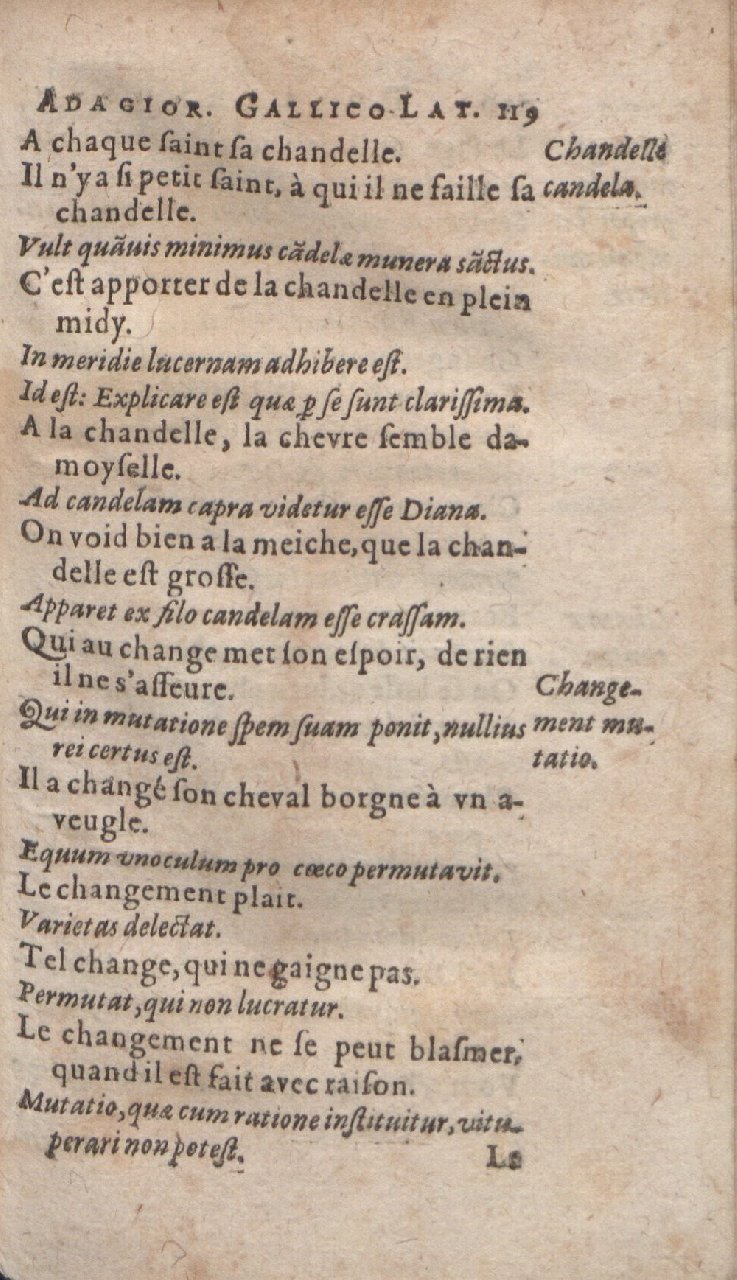 ADAGIOR. GALLICO LAT. 119
A chaque ſaint ſa chandelle.
Chandelle
Il n'y a ſi petit ſaint, à qui il ne faille ſa
candela.
chandelle.
Vult quāuis minimus cādelæ munera sāctus.
C'eſt apporter de la chandelle en plein
midy.
In meridie lucernam adhibere eſt.
Id eſt: Explicare eſt quæ ꝑ ſe ſunt clariſſima.
A la chandelle, la chevre ſemble da-
moyſelle.
Ad candelam capra videtur eſſe Diana.
On void bien a la meiche, que la chan-
delle eſt groſſe.
Apparet ex filo candelam eſſe craſſam.
Qui au change met ſon eſpoir, de rien
il ne s'aſſeure.
Change-
Qui in mutatione ſpem ſuam ponit, nullius
ment mu-
rei certus eſt.
tatio.
Il a changé ſon cheval borgne à vn a-
veugle.
Equum vnoculum pro cœco permutavit.
Le changement plait.
Varietas delectat.
Tel change, qui ne gaigne pas.
Permutat, qui non lucratur.
Le changement ne ſe peut blaſmer,
quand il eſt fait avec raiſon.
Mutatio, quæ cum ratione inſtituitur, vitu-
perari non poteſt.
Le